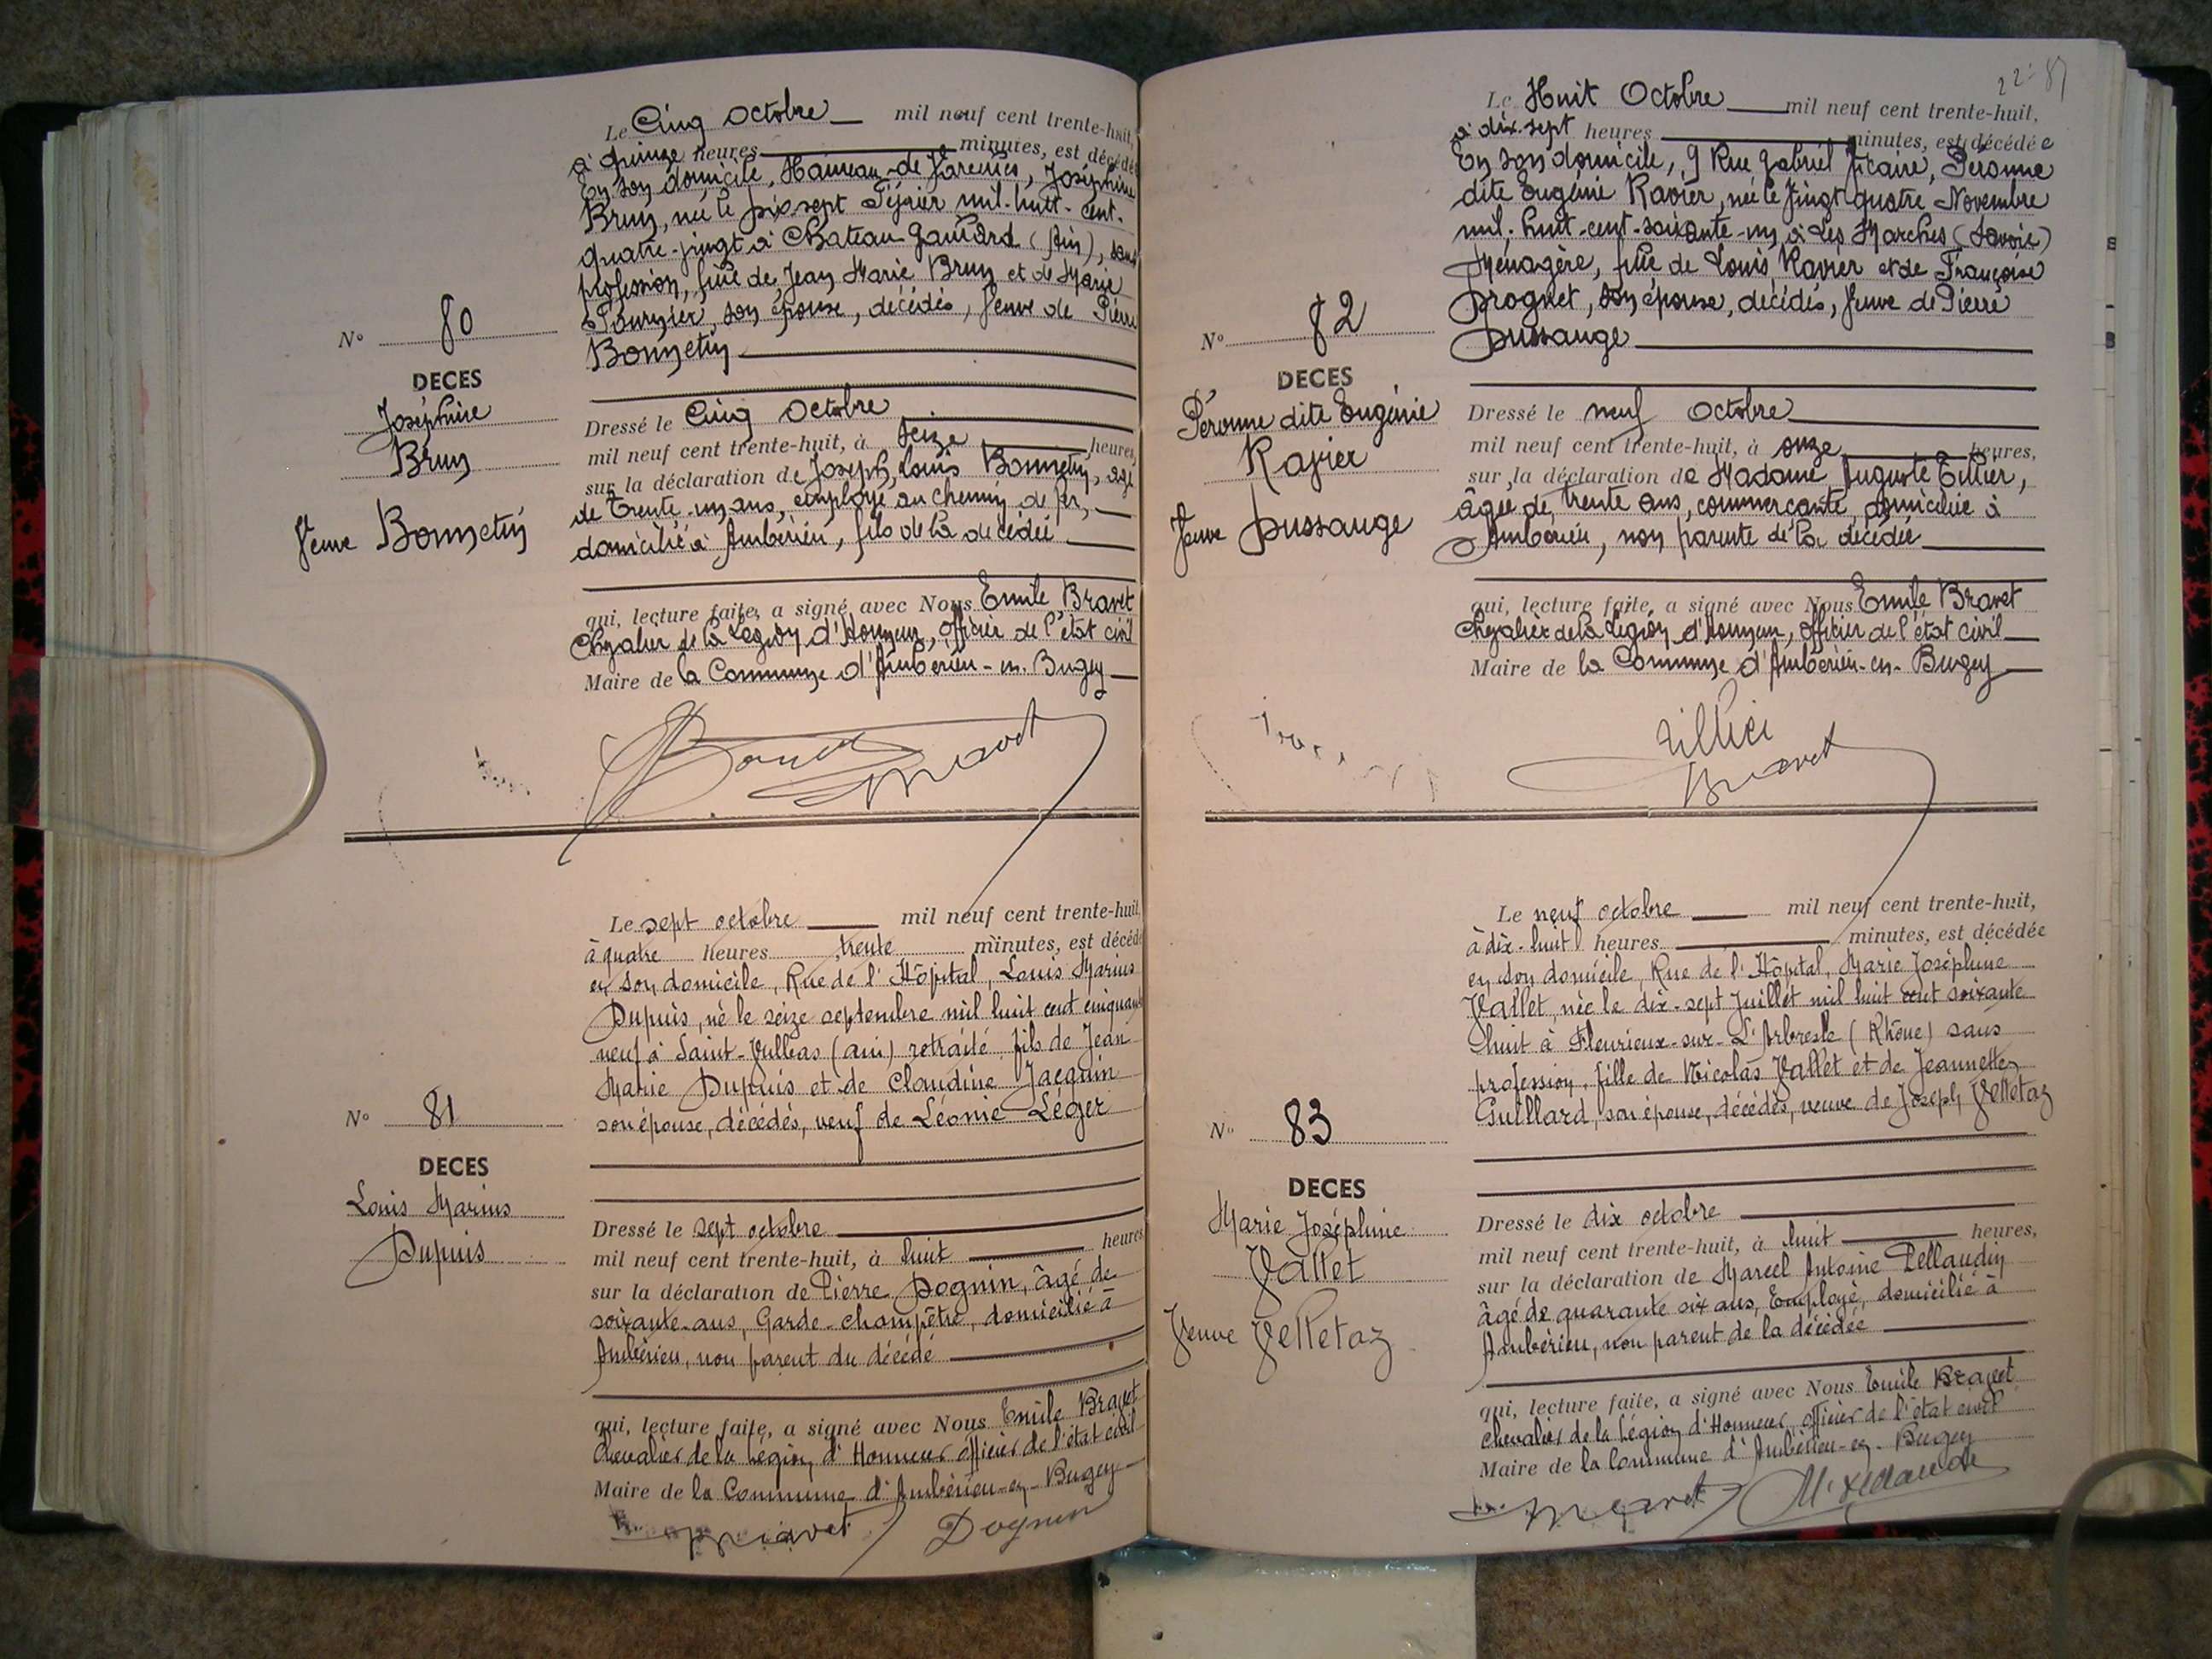 Le Cinq Octobre mil neuf cent trente-huit,
à quinze heures minutes, est décédée
En son domicile, Hameau de Vareilles, Joséphine
Brun, née le dix sept Février mil-huit-cent-
quatre-vingt à Chateau-Gaillard (Ain), sans
profession, fille de Jean Marie Brun et de Marie
Fournier, son épouse, décédés, veuve de Pierre
Bonnetin
N° 80
DECES
Joséphine
Brun
Veuve Bonnetin
Dressé le Cinq Octobre
mil neuf cent trente-huit, à seize heures,
sur la déclaration de Joseph, Louis Bonnetin, agé
de trente-un ans, employé au chemin de fer,
domicilié à Ambérieu, fils de la décédée
qui, lecture faite, a signé avec Nous Emile Bravet
Chevalier de la Legion d'Honneur, officier de l'état civil
Maire de la Commune d'Ambérieu-en-Bugey
Bravet
Le sept octobre mil neuf cent trente-huit,
à quatre heures trente minutes, est décédé
en son domicile, Rue de l'Hôpital, Louis Marius
Dupuis, né le seize septembre mil huit cent cinquante
neuf à Saint-Vulbas (ain) retraité, fils de Jean
Marie Dupuis et de Claudine Jacquin
son épouse, décédés, veuf de Léonie Léger
N° 81
DECES
Louis Marius
Dupuis
Dressé le sept octobre
mil neuf cent trente-huit, à huit heures
sur la déclaration de Pierre Dognin, âgé de
soixante-ans, Garde-champêtre, domicilié à
Ambérieu, non parent du décédé
qui, lecture faite, a signé avec Nous Emile Bravet
Chevalier de la Légion d'Honneur officier de l'état civil
Maire de la Commune d'Ambérieu-en-Bugey
Bravet Dognin
22-87
Le Huit Octobre mil neuf cent trente-huit,
à dix-sept heures minutes, est décédée
En son domicile, 9 Rue Gabriel Vicaire, Péronne
dite Eugénie Ravier, née le Vingt quatre Novembre
mil-huit-cent-soixante-un à Les Marches (Savoie)
Ménagère, fille de Louis Ravier et de Françoise
Prognet, son épouse, décédés, Veuve de Pierre
Dussauge
N° 82
DECES
Péronne dite Eugénie
Ravier
Veuve Dussauge
Dressé le neuf Octobre
mil neuf cent trente-huit, à onze heures,
sur la déclaration de Madame Auguste Tillier,
âgée de trente ans, commerçante, domiciliée à
Ambérieu, non parente de la décédée
qui, lecture faite, a signé avec Nous Emile Bravet
Chevalier de la Légion d'Honneur, Officier de l'état civil
Maire de la Commune d'Ambérieu-en-Bugey
Tillier
Bravet
Le neuf octobre mil neuf cent trente-huit,
à dix-huit heures minutes, est décédée
en son domicile, Rue de l'Hôpital, Marie Joséphine
Vallet, née le dix-sept Juillet mil huit cent soixante
huit à Fleurieux-sur-L'Arbresle (Rhône) sans
profession, fille de Nicolas Vallet et de Jeannette
Guillard, son épouse, décédés, veuve de Joseph Velletaz
N° 83
DECES
Marie Joséphine
Vallet
Veuve Velletaz
Dressé le dix octobre
mil neuf cent trente-huit, à huit heures,
sur la déclaration de Marcel Antoine Pellaudin
âgé de quarante six ans, Employé, domicilié à
Ambérieu, non parent de la décédée
qui, lecture faite, a signé avec Nous Emile Bravet
Chevalier de la Légion d'Honneur officier de l'état civil
Maire de la Commune d'Ambérieu-en-Bugey
Bravet